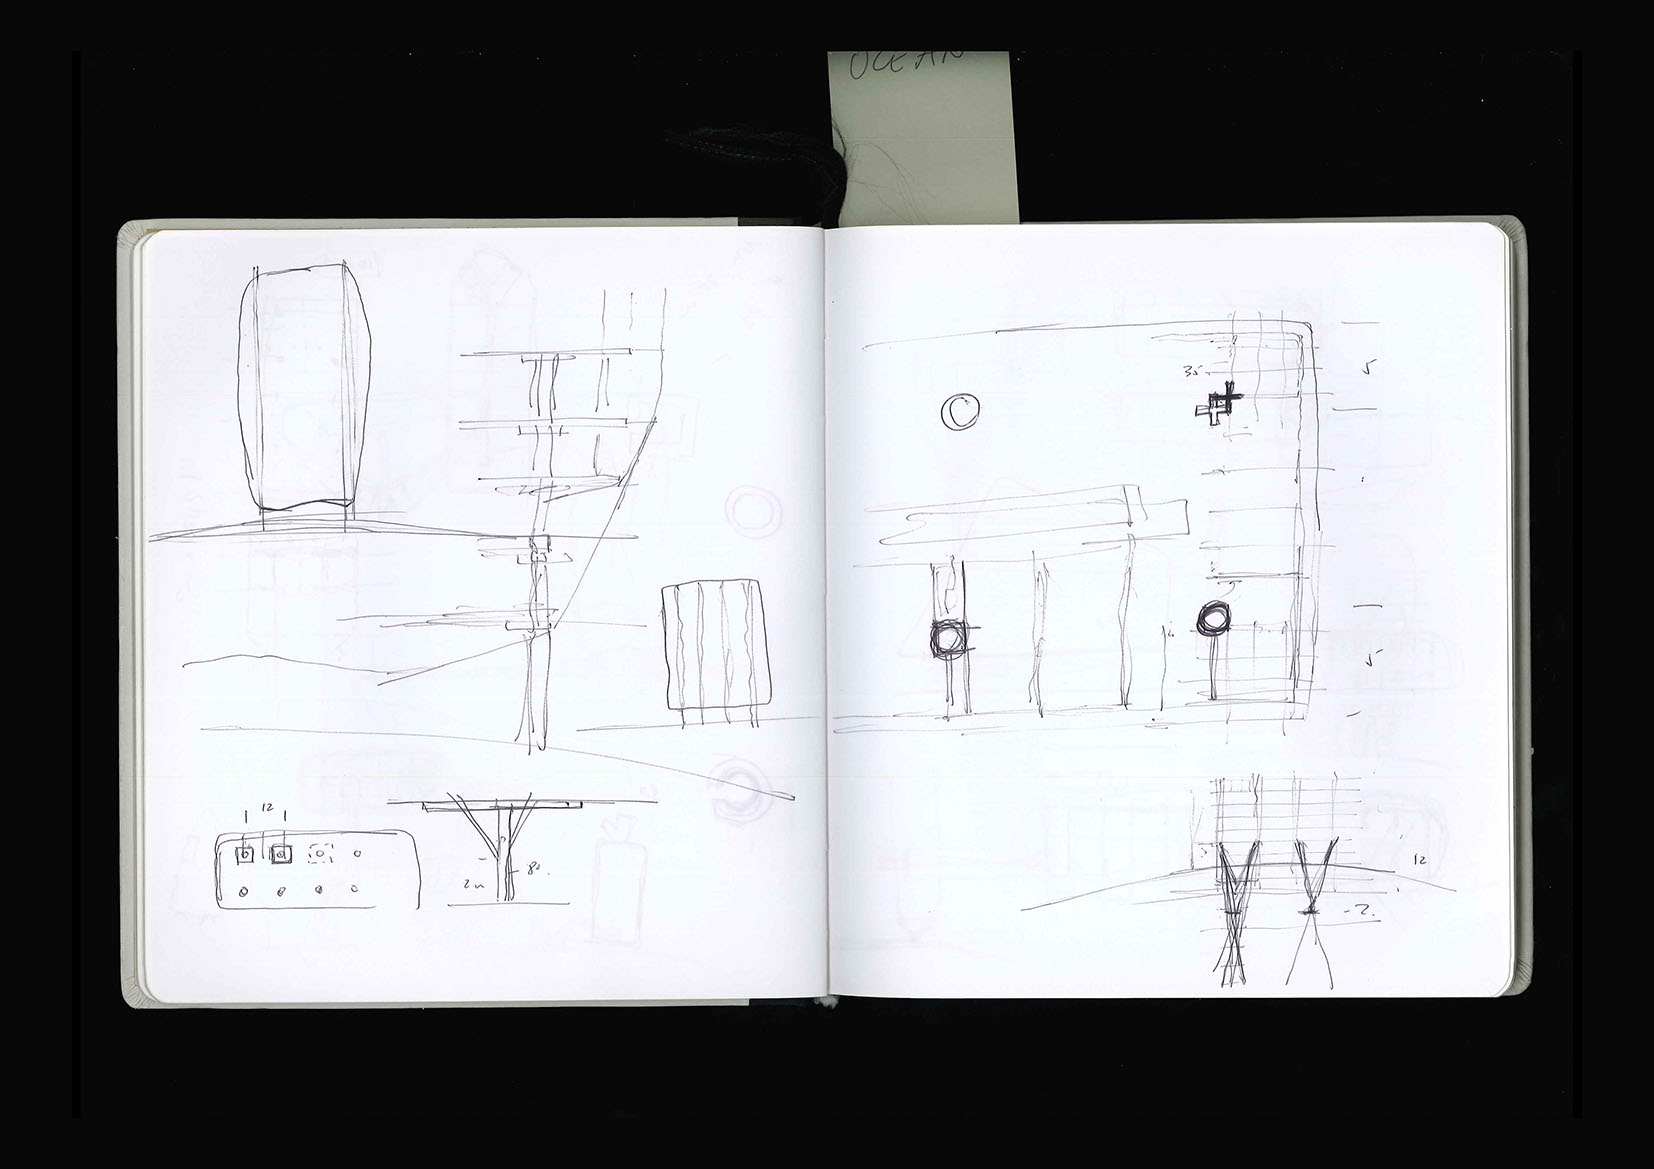 OCEAN
12
80.
35
5
5
12
-2.